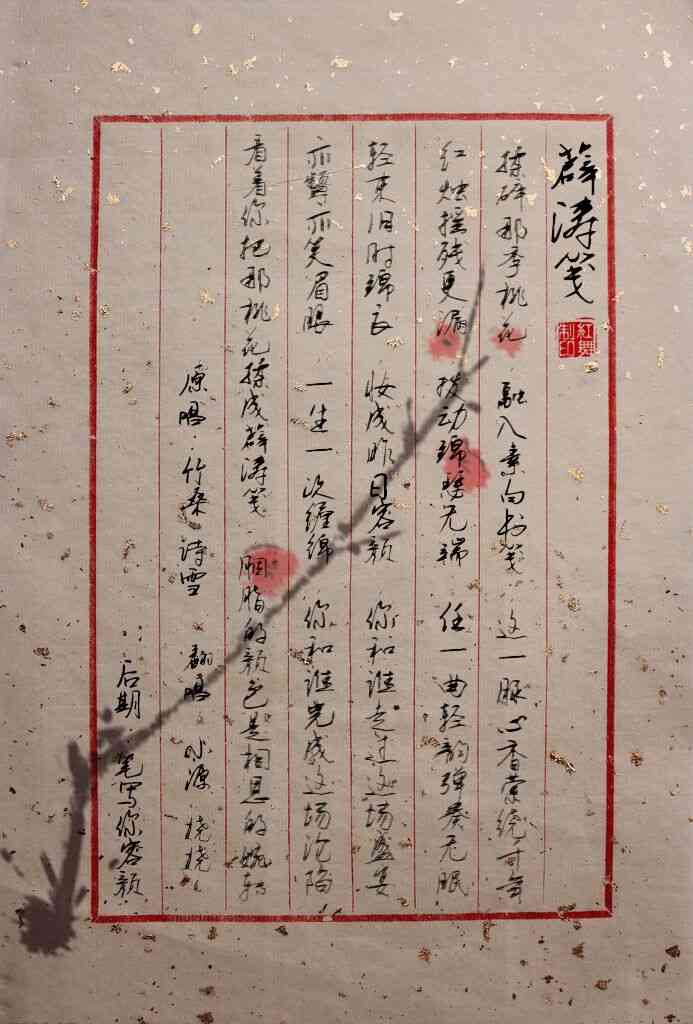 薛涛笺
紅舞制印
揉碎那季桃花 融入素白书笺 这一脉心香萦绕千年
红烛摇残更漏 拨动锦瑟无端 任一曲轻韵弹奏无眠
轻束旧时锦衣 妆成昨日容颜 你和谁走过这场盛宴
亦颦亦笑眉眼 一生一次缠绵 你和谁完成这场沦陷
看着你把那桃花揉成薛涛笺 胭脂的颜色是相思的婉转
原唱：竹桑 诗雪 翻唱：小源 桡桡
后期：笔写你容颜